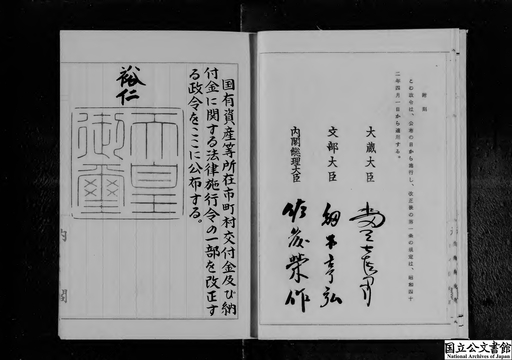 附則
この政令は、公布の日から施行し、改正後の第一条の規定は、昭和四十
二年四月一日から適用する。
大蔵大臣
文部大臣
内閣総理大臣 佐藤栄作
国有資産等所在市町村交付金及び納
付金に関する法律施行令の一部を改正す
る政令をここに公布する。
裕仁
天皇
御璽
内閣
国立公文書館
National Archives of Japan